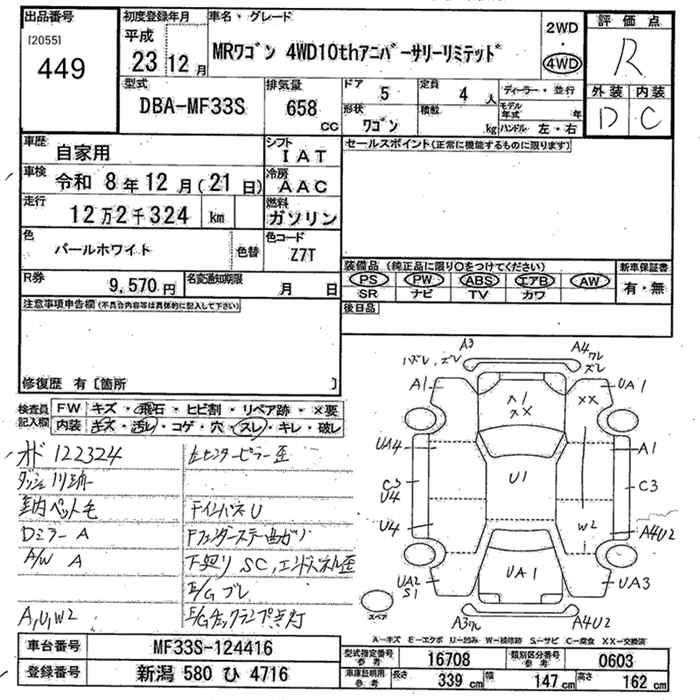 出品番号
[2055]
449
初度登録年月
平成
23 12月
車名・グレード
MRワゴン 4WD10thアニバーサリーリミテッド
2WD
・
4WD
評価点
R
外装 内装
D C
型式
DBA-MF33S
排気量
658
cc
ドア
5
定員
4 人
形状
ワゴン
積載
kg
ディーラー・並行
モデル年式 年
ハンドル 左・右
車歴
自家用
シフト
IAT
車検
令和 8年12月(21日)
冷房
AAC
走行
12万2千324 km
燃料
ガソリン
色
パールホワイト
色替
色コード
Z7T
R券
9,570円
名変通知期限
月 日
セールスポイント(正常に機能するものに限ります)
装備品(純正品に限り○をつけてください)
PS PW ABS エアB AW
SR ナビ TV カワ
新車保証書
有・無
後日品
注意事項申告欄(不具合内容等は具体的に記入して下さい)
修復歴 有〔箇所
検査員記入欄
FW キズ・飛石・ヒビ割・リペア跡・×要
内装 キズ・汚レ・コゲ・穴・スレ・キレ・破レ
オド 122324
室内ペット毛
Dミラー A
A/W A
A,U,W2
左センターピラー歪
FインパネU
下廻り SC,エンドパネル歪
E/G ブレ
E/Gチェックランプ点灯
A3
バズレ,ズレ
A4 ワレ
ズレ
A1
UA1
XX
UA4
A1
C3
U4
U1
C3
U4
W2
A4U2
UA2
S1
UA1
UA3
スペア
A4U2
A-キズ E-エクボ U-凹み W-補修跡 S-サビ C-腐食 XX-交換済
車台番号
MF33S-124416
登録番号
新潟 580 ひ 4716
型式指定番号
参考
16708
類別区分番号
参考
0603
車庫証明用
参考
長さ 339 cm 幅 147 cm 高さ 162 cm